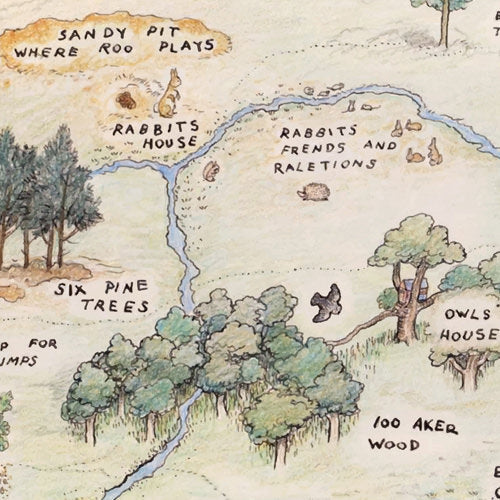 SANDY PIT
WHERE ROO PLAYS
RABBITS
HOUSE
RABBITS
FRENDS AND
RALETIONS
SIX PINE
TREES
OWLS
HOUSE
P FOR
UMPS
100 AKER
WOOD